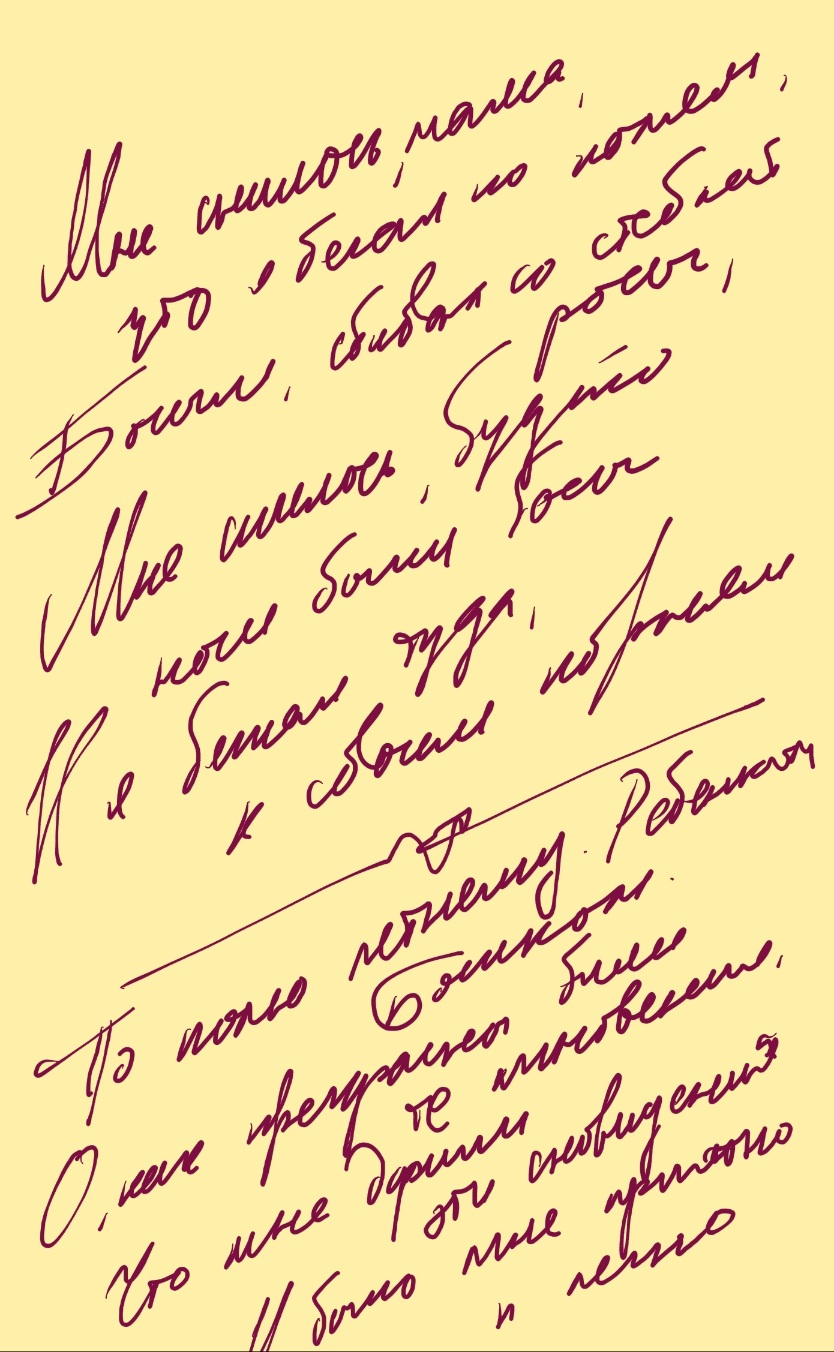 Мне снилось, мама,
что я бегал по полям,
Босым, сбивая со стеблей
росы,
Мне снилось, будто
ноги были босы
И я бежал туда,
к своим
По полю летнему. Ребенком
Босиком.
О, как прекрасны были
те мгновения,
Что мне дарили
эти сновидения
И было мне приятно
и легко